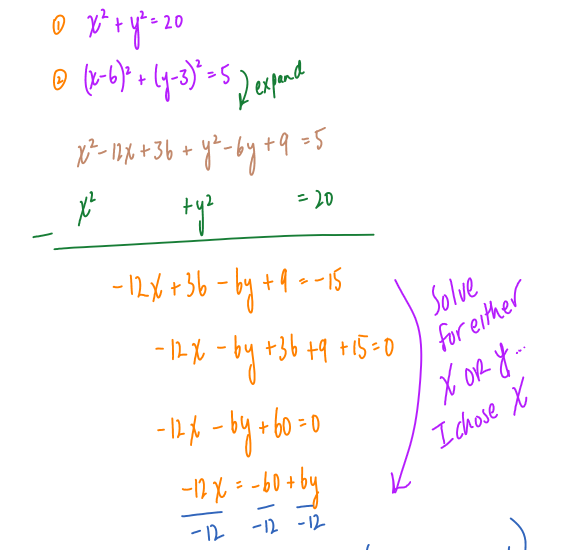 ① x² + y² = 20
② (x-6)² + (y-3)² = 5
expand
x² - 12x + 36 + y² - 6y + 9 = 5
- x² + y² = 20
-12x + 36 - 6y + 9 = -15
-12x - 6y + 36 + 9 + 15 = 0
-12x - 6y + 60 = 0
-12x = -60 + 6y
-12 -12 -12
Solve
for either
x or y...
I chose x